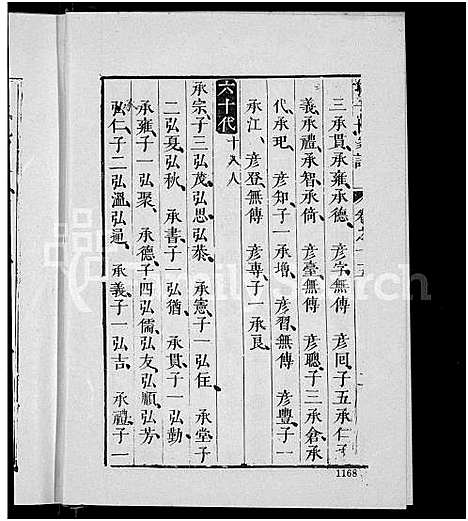 三承貫承雍承德 彥字無傳 彥回子五承仁承
義承禮承智承倚 彥臺無傳 彥聰子三承倉承
代承玘 彥知子一承增 彥習無傳 彥豐子一
承江 彥登無傳 彥專子一承良
六十代 十八人
承宗子三弘茂弘思弘恭 承憲子一弘任 承堂子
二弘夏弘秋 承書子一弘猶 承貫子一弘勤
承雍子一弘聚 承德子四弘儒弘友弘順弘芳
弘仁子二弘溫弘逼 承義子一弘吉 承禮子一
卷之十五
FamilySearch
1168